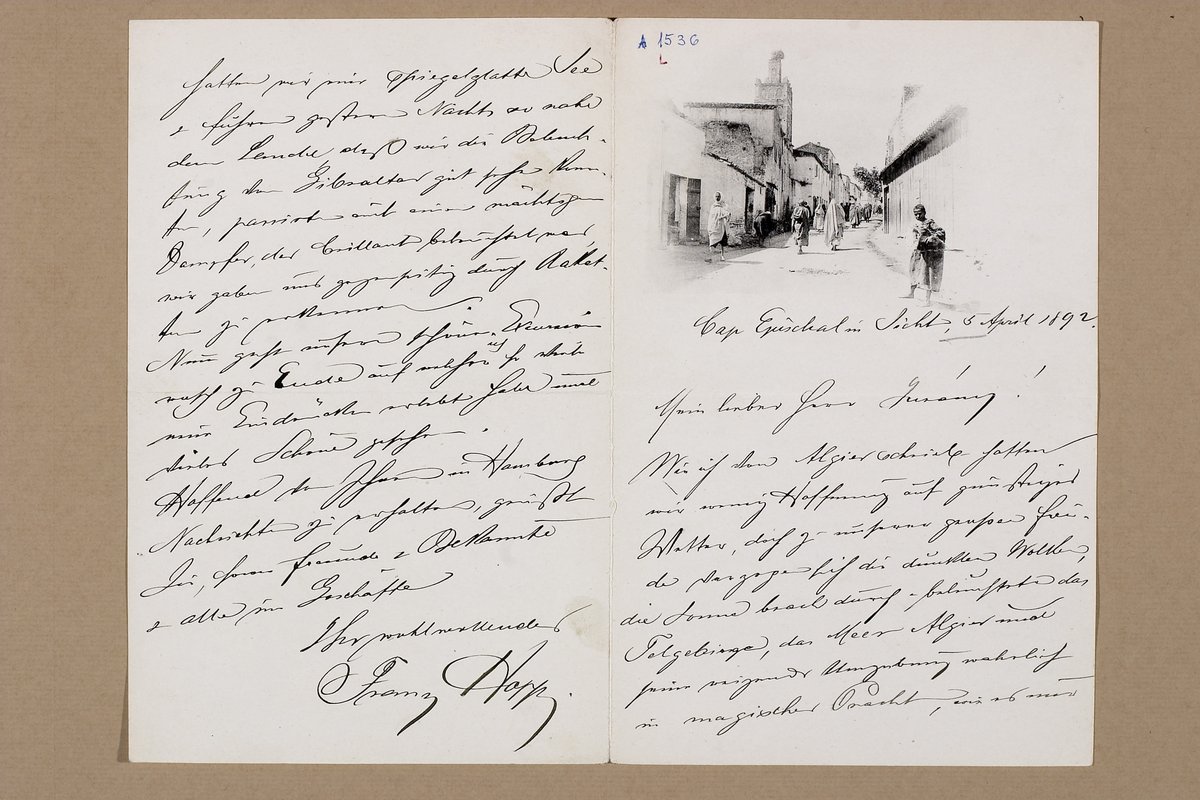 A 1536
L
Cap Espichel in Sicht, 5 April 1892.
Mein lieber Herr Jurány!
Wie ich von Algier schrieb hatten
wir wenig Hoffnung auf günstiges
Wetter, doch zu unserer grossen Freu-
de verzogen sich die dunklen Wolken,
die Sonne brach durch & beleuchtete das
Telgebirge, das Meer Algier und
seine reizende Umgebung wahrlich
in magischer Pracht, wie es nur
hatten wir nur spiegelglatte See
& fuhren gestern Nachts so nahe
dem Lande, daß wir die Beleuch-
tung von Gibraltar gut sehen konn-
ten, passirten auch einen mächtigen
Dampfer, der brillant beleuchtet war,
wir gaben uns gegenseitig durch Raket-
ten zu erkennen.
Nun geht unsere schöne Excursion
rasch zu Ende auf welcher ich so viele
neue Eindrücke erlebt habe und
vieles Schöne gesehen.
Hoffend von Ihnen in Hamburg
Nachrichten zu erhalten, grüßt
Sie, sowie Freunde & Bekannte
& alle im Geschäfte
Ihr wohlwollender
Franz Hopp.